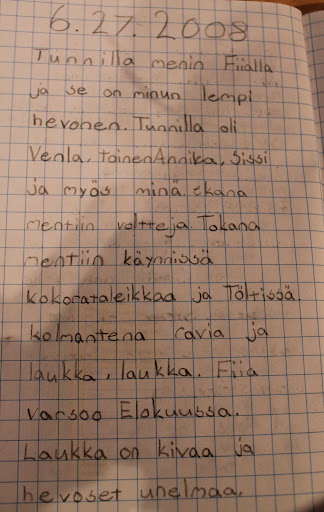 6.27.2008
Tunnilla menin Fiialla
ja se on minun lempi
hevonen. Tunnilla oli
Venla, toinen Annika, Sissi
ja myös minä. Ekana
mentiin voltteja. Tokana
mentiin käynnissä
kokorataleikkaa ja Töltissä.
kolmantena ravia ja
laukka, laukka. Fiia
varsoo Elokuussa.
Laukka on kivaa ja
hevoset unelmaa.